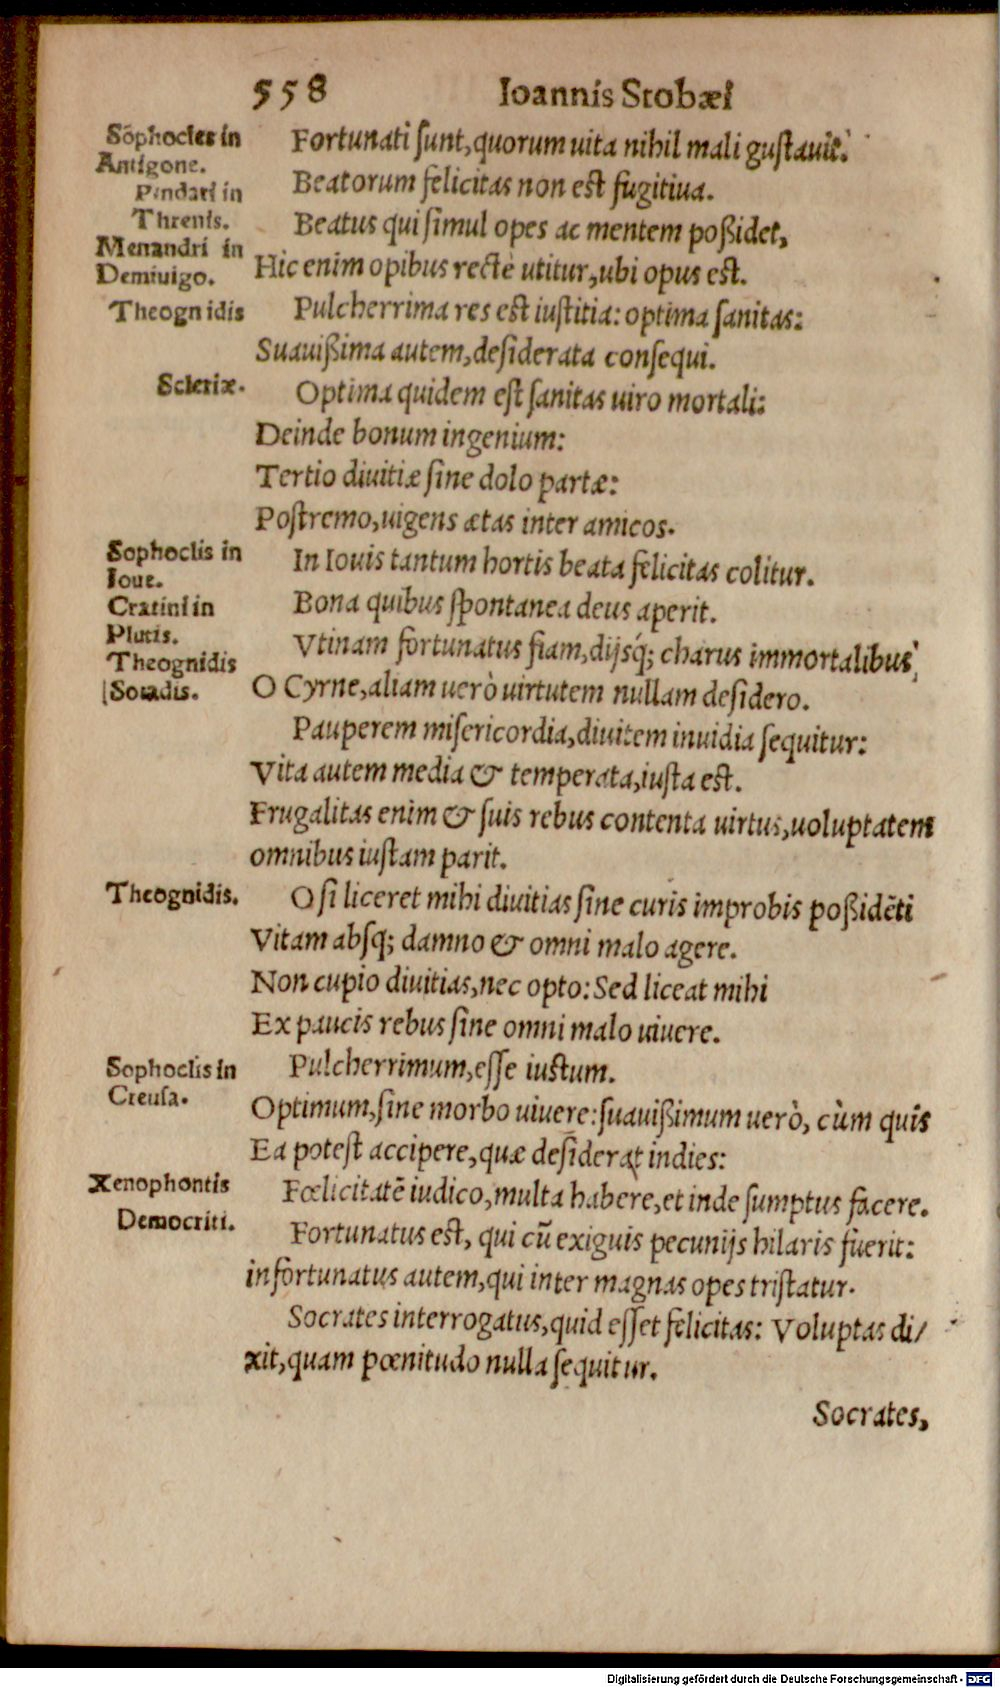 558 Ioannis Stobæi
Sophocles in
Antigone.
Fortunati sunt, quorum uita nihil mali gustauit.
Pindari in
Threnis.
Beatorum felicitas non est fugitiua.
Menandri in
Demiuigo.
Beatus qui simul opes ac mentem poßidet,
Hic enim opibus rectè utitur, ubi opus est.
Theognidis
Pulcherrima res est iustitia: optima sanitas:
Suauißima autem, desiderata consequi.
Scleriæ.
Optima quidem est sanitas uiro mortali:
Deinde bonum ingenium:
Tertio diuitiæ sine dolo partæ:
Postremo, uigens ætas inter amicos.
Sophoclis in
Ioue.
In Iouis tantum hortis beata felicitas colitur.
Cratini in
Plutis.
Bona quibus spontanea deus aperit.
Theognidis
Vtinam fortunatus fiam, dijsq́; charus immortalibus,
O Cyrne, aliam uerò uirtutem nullam desidero.
Sotadis.
Pauperem misericordia, diuitem inuidia sequitur:
Vita autem media & temperata, iusta est.
Frugalitas enim & suis rebus contenta uirtus, uoluptatem
omnibus iustam parit.
Theognidis.
O si liceret mihi diuitias sine curis improbis poßidẽti
Vitam absq; damno & omni malo agere.
Non cupio diuitias, nec opto: Sed liceat mihi
Ex paucis rebus sine omni malo uiuere.
Sophoclis in
Creusa.
Pulcherrimum, esse iustum.
Optimum, sine morbo uiuere: suauißimum uerò, cùm quis
Ea potest accipere, quæ desiderat indies:
Xenophontis
Fœlicitatẽ iudico, multa habere, et inde sumptus facere.
Democriti.
Fortunatus est, qui cũ exiguis pecunijs hilaris fuerit:
infortunatus autem, qui inter magnas opes tristatur.
Socrates interrogatus, quid esset felicitas: Voluptas di/
xit, quam pœnitudo nulla sequitur.
Socrates,
Digitalisierung gefördert durch die Deutsche Forschungsgemeinschaft - DFG